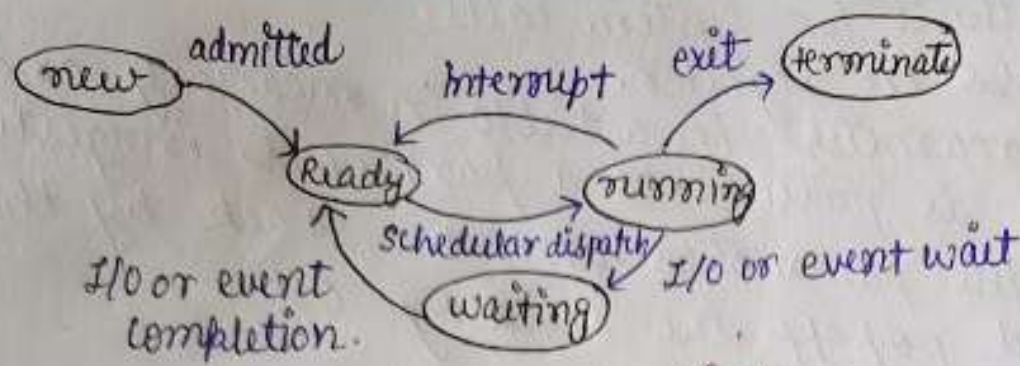 new
admitted
Interrupt
exit
terminate
Ready
running
Schedular dispatch
I/O or event wait
I/O or event
completion.
waiting